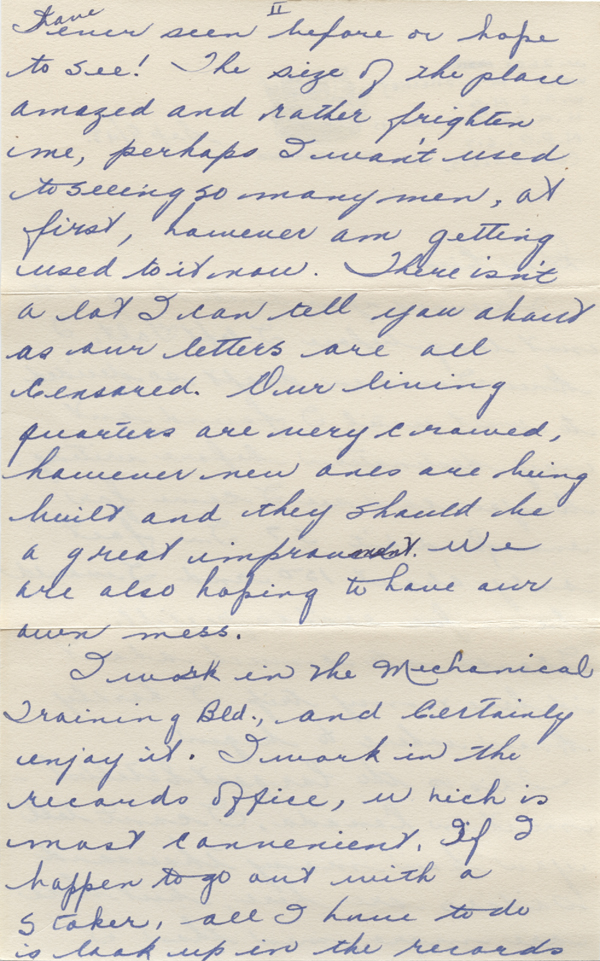 II
have
I ever seen before or hope
to see! The size of the place
amazed and rather frighten
me, perhaps I wasn't used
to seeing so many men, at
first, however am getting
used to it now. There isn't
a lot I can tell you about
as our letters are all
Censored. Our living
quarters are very crowed,
however new ones are being
built and they should be
a great improvement. We
are also hoping to have our
own mess.
I work in the Mechanical
Training Bld., and Certainly
enjoy it. I work in the
records office, which is
most convenient. If I
happen to go out with a
Stoker, all I have to do
is look up in the records